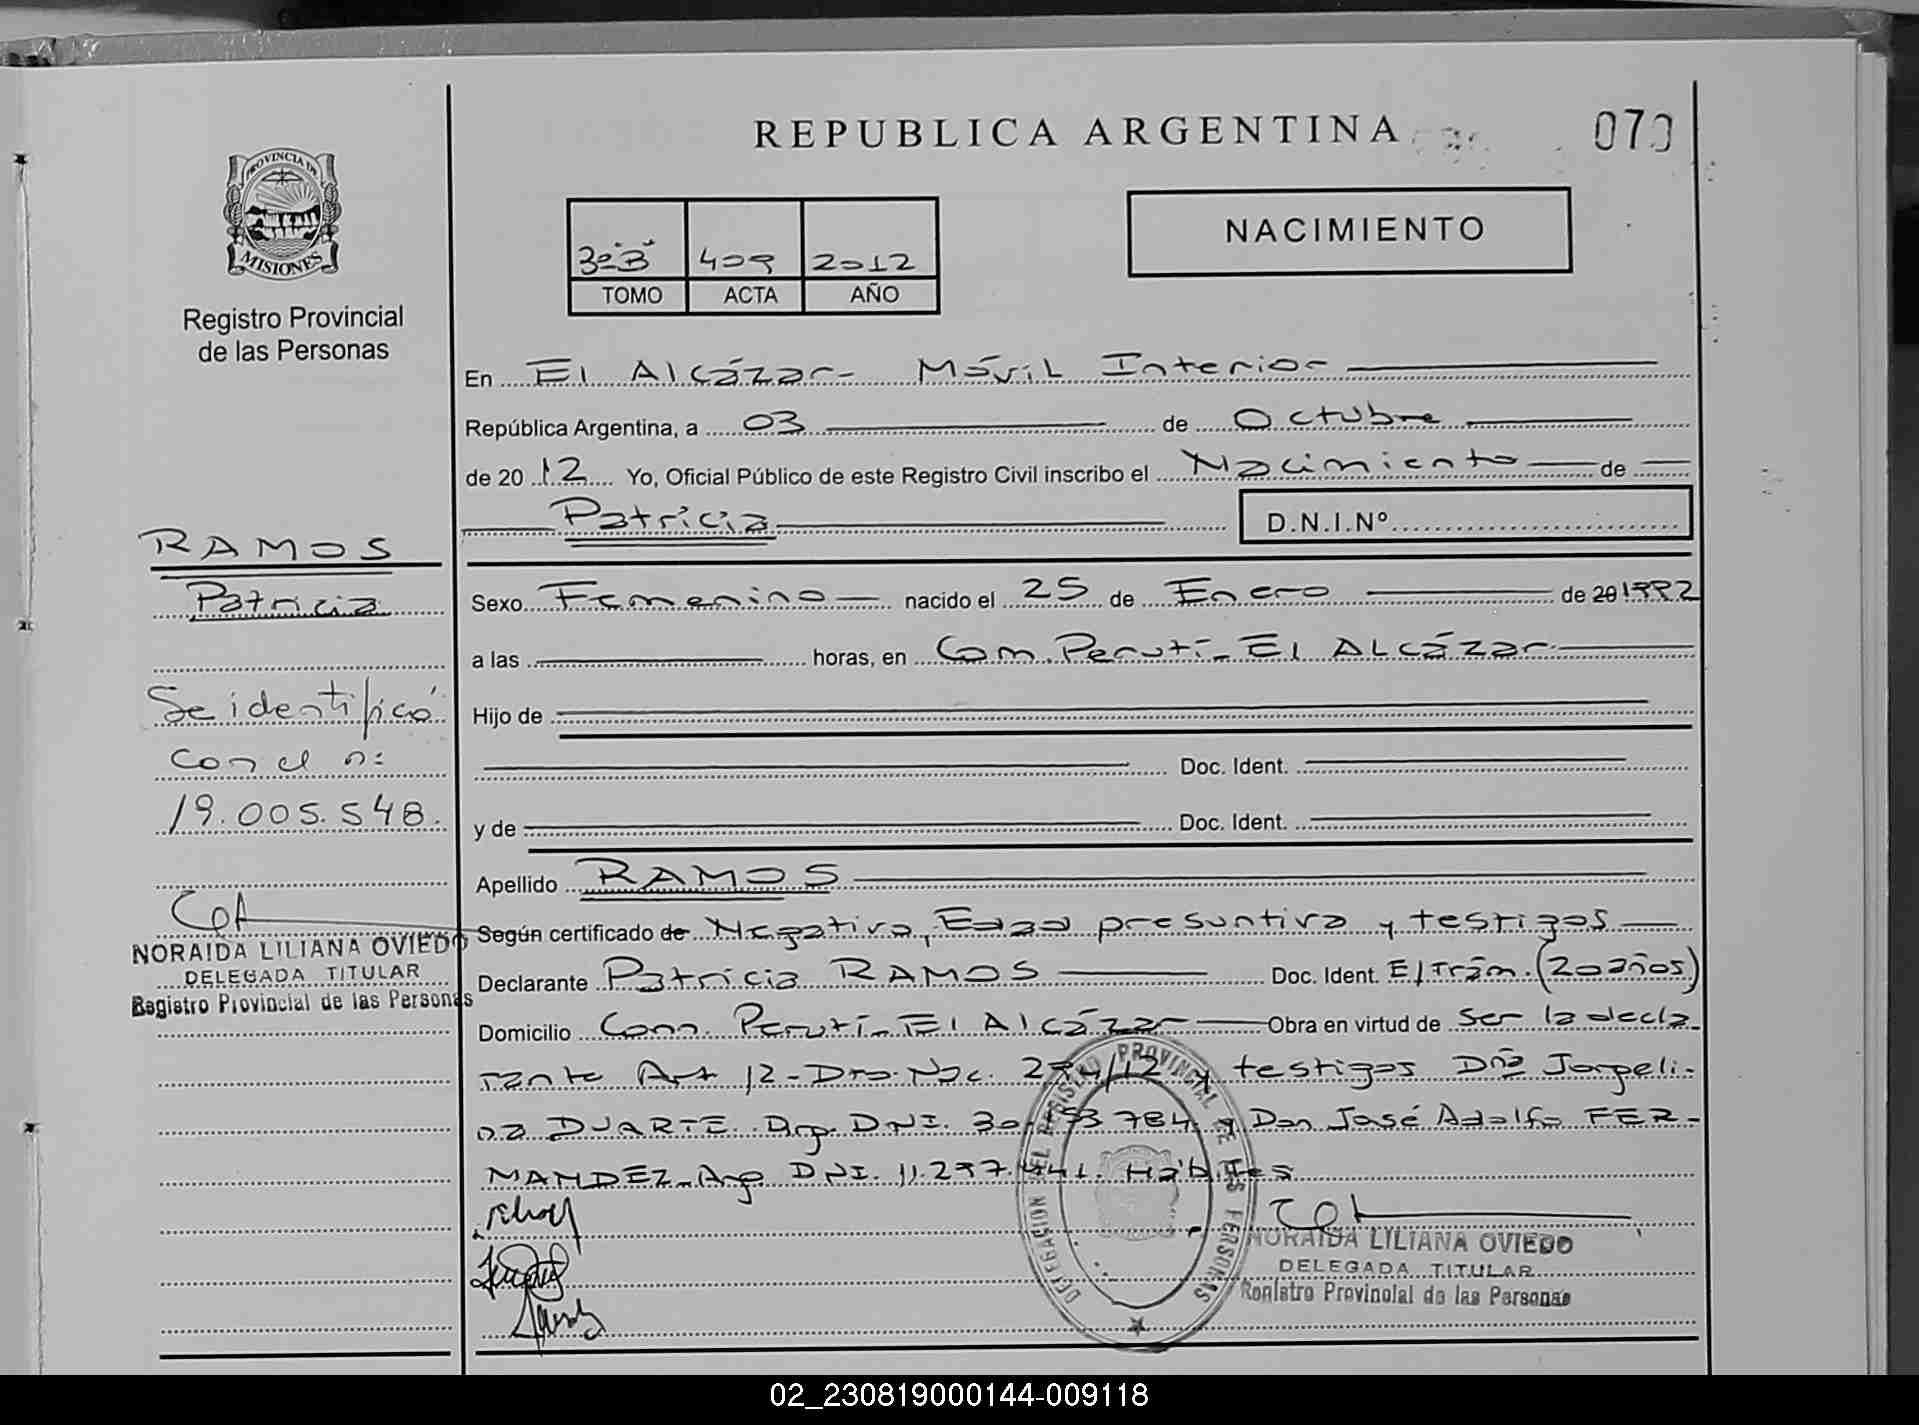 REPUBLICA ARGENTINA
070
PROVINCIA DE
MISIONES
Registro Provincial
de las Personas
3º "B" 409 2012
TOMO ACTA AÑO
NACIMIENTO
En El Alcázar - Móvil Interior
República Argentina, a 03 de Octubre
de 2012 Yo, Oficial Público de este Registro Civil inscribo el Nacimiento de
Patricia
D.N.I.Nº
RAMOS
Patricia
Se identificó
con el n:
19.005.548.
NORAIDA LILIANA OVIEDO
DELEGADA TITULAR
Registro Provincial de las Personas
Sexo Femenino nacido el 25 de Enero de 20 1992
a las horas, en Com. Perutí - El ALCázar
Hijo de
Doc. Ident.
y de Doc. Ident.
Apellido RAMOS
Según certificado de Negativa, Edad presuntiva y testigos
Declarante Patricia RAMOS Doc. Ident. E/Trám. (20 años)
Domicilio Com. Perutí - El Alcázar Obra en virtud de ser la decla
rante Art 12 - Dto. Nac. 294/12 y testigos Dña Jorgeli-
na DUARTE. Arg. DNI. 784 y Don José Adolfo FER-
NANDEZ - Arg DNI. 11.297.441. Hábiles
DELEGACION DEL REGISTRO PROVINCIAL DE LAS PERSONAS
NORAIDA LILIANA OVIEDO
DELEGADA TITULAR
Registro Provincial de las Personas
02_230819000144-009118